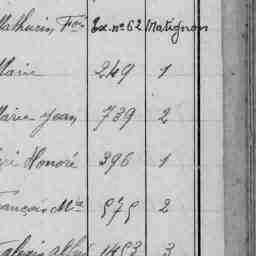 Mathurin Fois Ex. no 62 Matignon
Marie 249 1
Marie Jean 739 2
Honoré 396 1
François Mie 575 2
1453 3